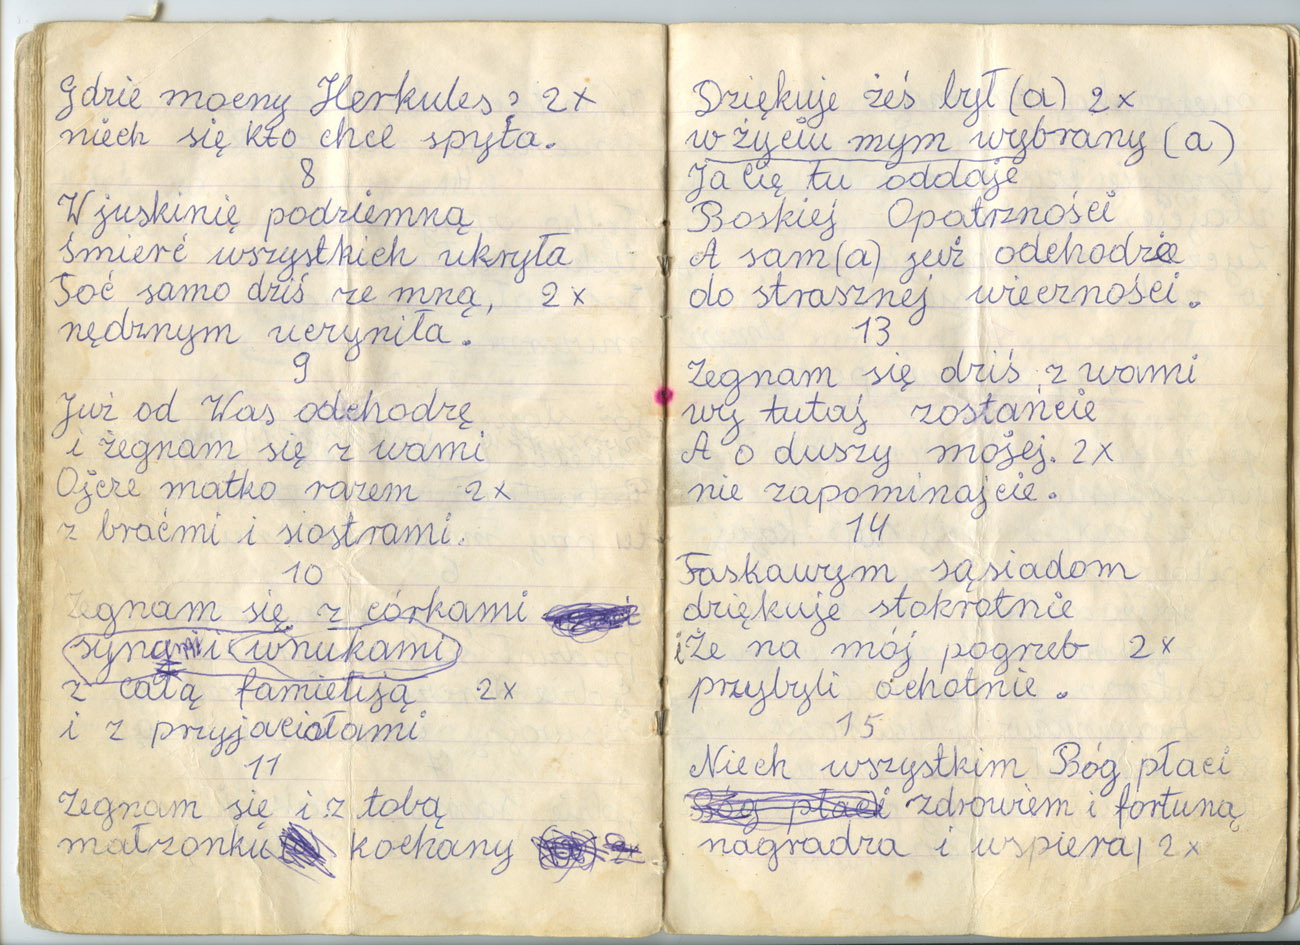 Gdzie mocny Herkules? 2x
niech się kto chce spyta.
8
W juskinię podziemną
śmierć wszystkich ukryła
Toć samo dziś ze mną, 2x
nędznym uczyniła.
9
Już od Was odchodzę
i żegnam się z wami
Ojcze matko razem 2x
z braćmi i siostrami.
10
Żegnam się z córkami
synami wnukami
z całą familiją 2x
i z przyjaciołami
11
Żegnam się i z tobą
małżonku kochany
Dziękuje żeś był (a) 2x
w życiu mym wybrany (a)
Ja cię tu oddaje
Boskiej Opatrzności
A sam(a) już odchodzę
do strasznej wieczności.
13
Żegnam się dziś z wami
wy tutaj zostańcie
A o duszy mojej. 2x
nie zapominajcie.
14
Łaskawym sąsiadom
dziękuje stokrotnie
i Że na mój pogrzeb 2x
przybyli ochotnie.
15
Niech wszystkim Bóg płaci
Bóg płaci zdrowiem i fortuną
nagradza i wspiera, 2x